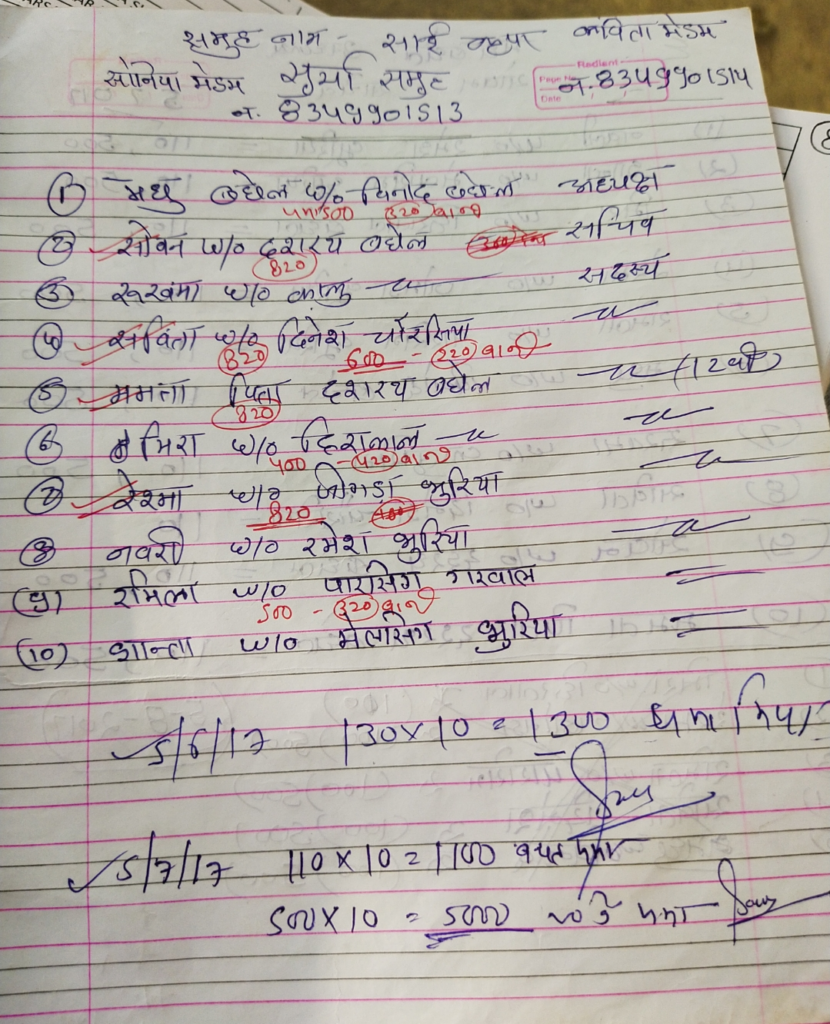 समुह नाम - साई कृपा कविता मेडम
सोनिया मेडम सुर्या समुह
Radiant
Page No.
Date
न. 8349901514
न. 8349901513
① मधु बघेल w/o विनोद बघेल अध्यक्ष
जमा 500 320 बाकी
② सोवन w/o दशरथ बघेल सचिव
820
③ रूखमा w/o कालु —〃— सदस्य
④ सविता w/o दिनेश चौरसिया —〃—
820 600 - 220 बाकी
⑤ ममता पिता दशरथ बघेल —〃— (12वी)
820
⑥ मिरा w/o हिरालाल —〃— —〃—
400 - 420 बाकी
⑦ रेश्मा w/o जोगडा भुरिया —〃—
820
⑧ नवरी w/o रमेश भुरिया —〃—
(9) रमिला w/o पारसिंग गरवाल =
500 - 320 बाकी
(10) शान्ता w/o मेलसिंग भुरिया =
5/6/17 130 × 10 = 1300 जमा किया
5/7/17 110 × 10 = 1100 बचत जमा
500 × 10 = 5000 जमा